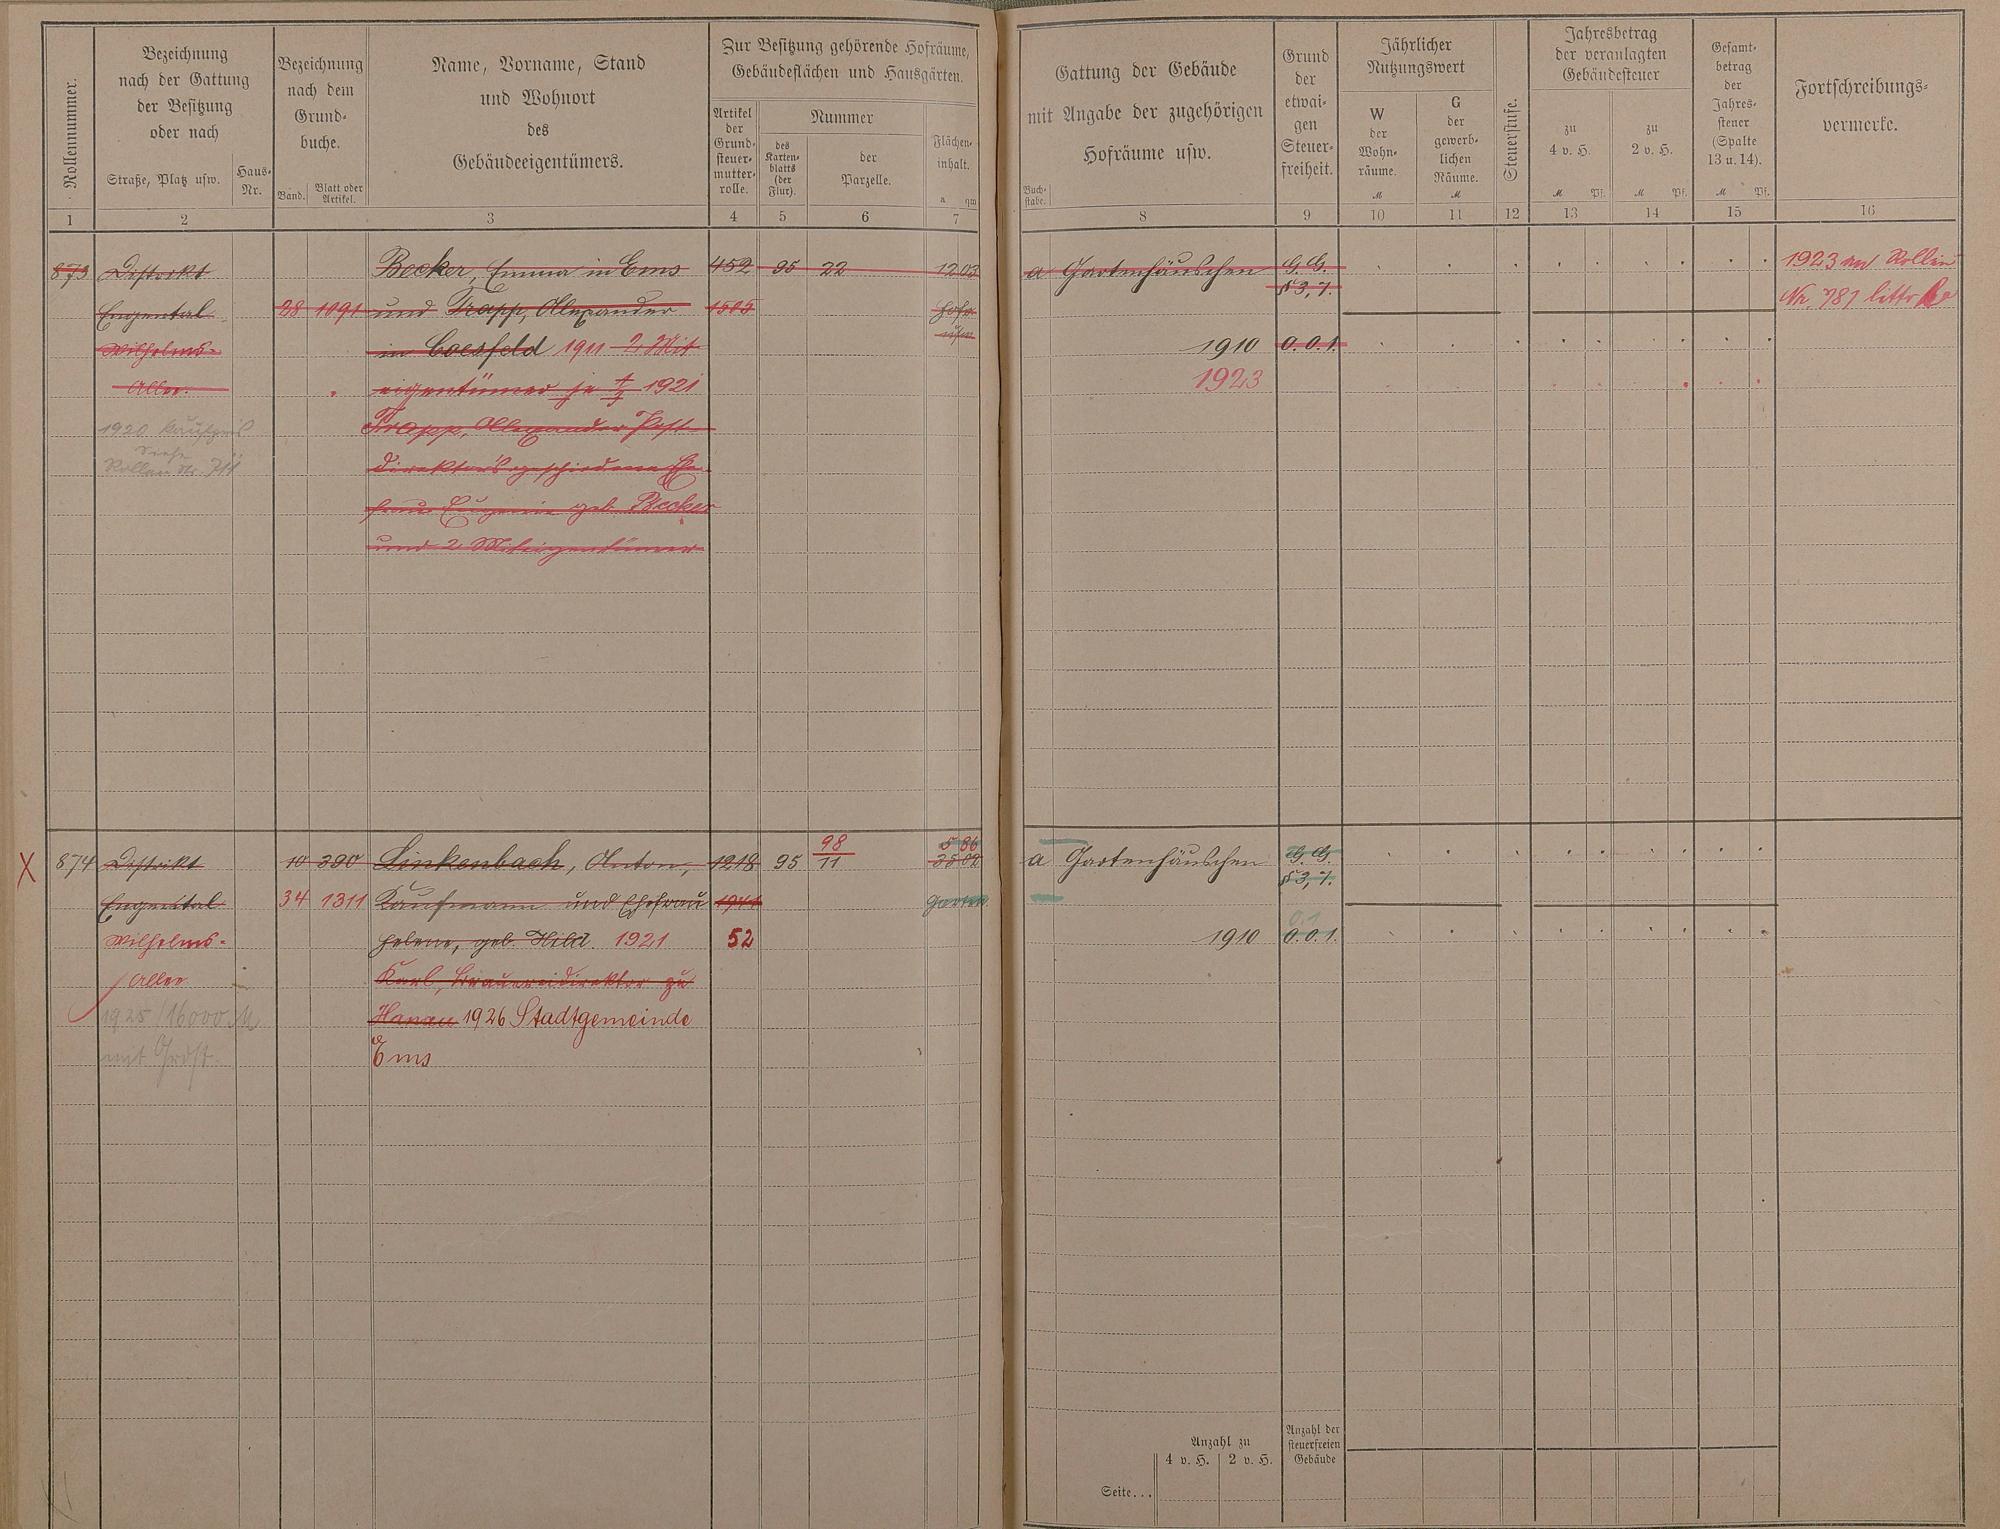 Rollennummer.
Bezeichnung
nach der Gattung
der Besitzung
oder nach
Straße, Platz usw.
Haus-
Nr.
Bezeichnung
nach dem
Grund-
buche.
Band.
Blatt oder
Artikel.
Name, Vorname, Stand
und Wohnort
des
Gebäudeeigentümers.
Zur Besitzung gehörende Hofräume,
Gebäudeflächen und Hausgärten.
Artikel
der
Grund-
steuer-
mutter-
rolle.
Nummer
des
Karten-
blatts
(der
Flur).
der
Parzelle.
Flächen-
inhalt.
a qm
Gattung der Gebäude
mit Angabe der zugehörigen
Hofräume usw.
Buch-
stabe.
Grund
der
etwai-
gen
Steuer-
freiheit.
Jährlicher
Nutzungswert
W
der
Wohn-
räume.
M
G
der
gewerb-
lichen
Räume.
M
Steuerstufe.
Jahresbetrag
der veranlagten
Gebäudesteuer
zu
4 v. H.
M Pf.
zu
2 v. H.
M Pf.
Gesamt-
betrag
der
Jahres-
steuer
(Spalte
13 u. 14).
M Pf.
Fortschreibungs-
vermerke.
1 2 3 4 5 6 7 8 9 10 11 12 13 14 15 16
873 Distrikt Becker, Emma in Ems 452 95 22 12 03 a Gartenhäuschen G. G. 1923 an Rollen
§ 3, 7. Nr. 781 littr
Engental 28 1091 und Trapp, Alexander 1505 Hofr.
Wilhelms- in Coesfeld 1911 2 Mit usw. 1910 0. 0. 1.
Allee. eigentümer je 1921 1923
1920 Kaufpreis Trapp, Alexander Post-
siehe
Rollen Nr. direktors geschiedene Ehe-
frau Eugenie geb. Becker
und 2 Miteigentümer
X 874 Distrikt 10 390 Linkenbach, Anton, 1218 95 98/11 5 86 35 02 a Gartenhäuschen G. G.
§ 3, 7.
Engental 34 1311 Kaufmann und Ehefrau 1941 Garten
Wilhelms- Helene, geb. Hild 1921 52 1910 0. 0. 1.
Allee Karl, Brauereidirektor zu
1925/16000 M Hanau 1926 Stadtgemeinde
mit Grdst. Ems
Anzahl zu
4 v. H. 2 v. H.
Anzahl der
steuerfreien
Gebäude
Seite...